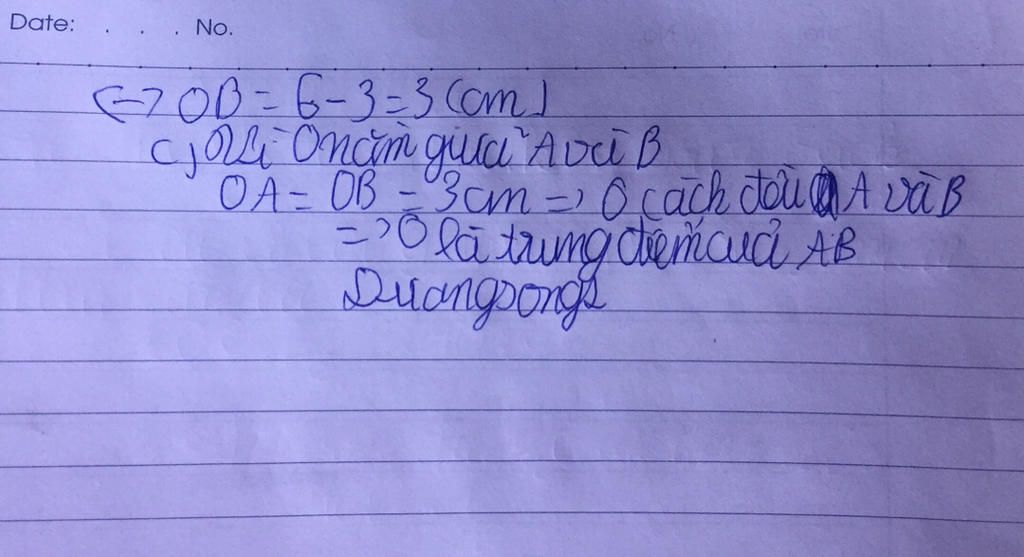 Date: . . . No.
<-> OB = 6 - 3 = 3 (cm)
c, Vì O nằm giữa A và B
OA = OB = 3cm => O cách đều A và B
=> O là trung điểm của AB
Duangsongz